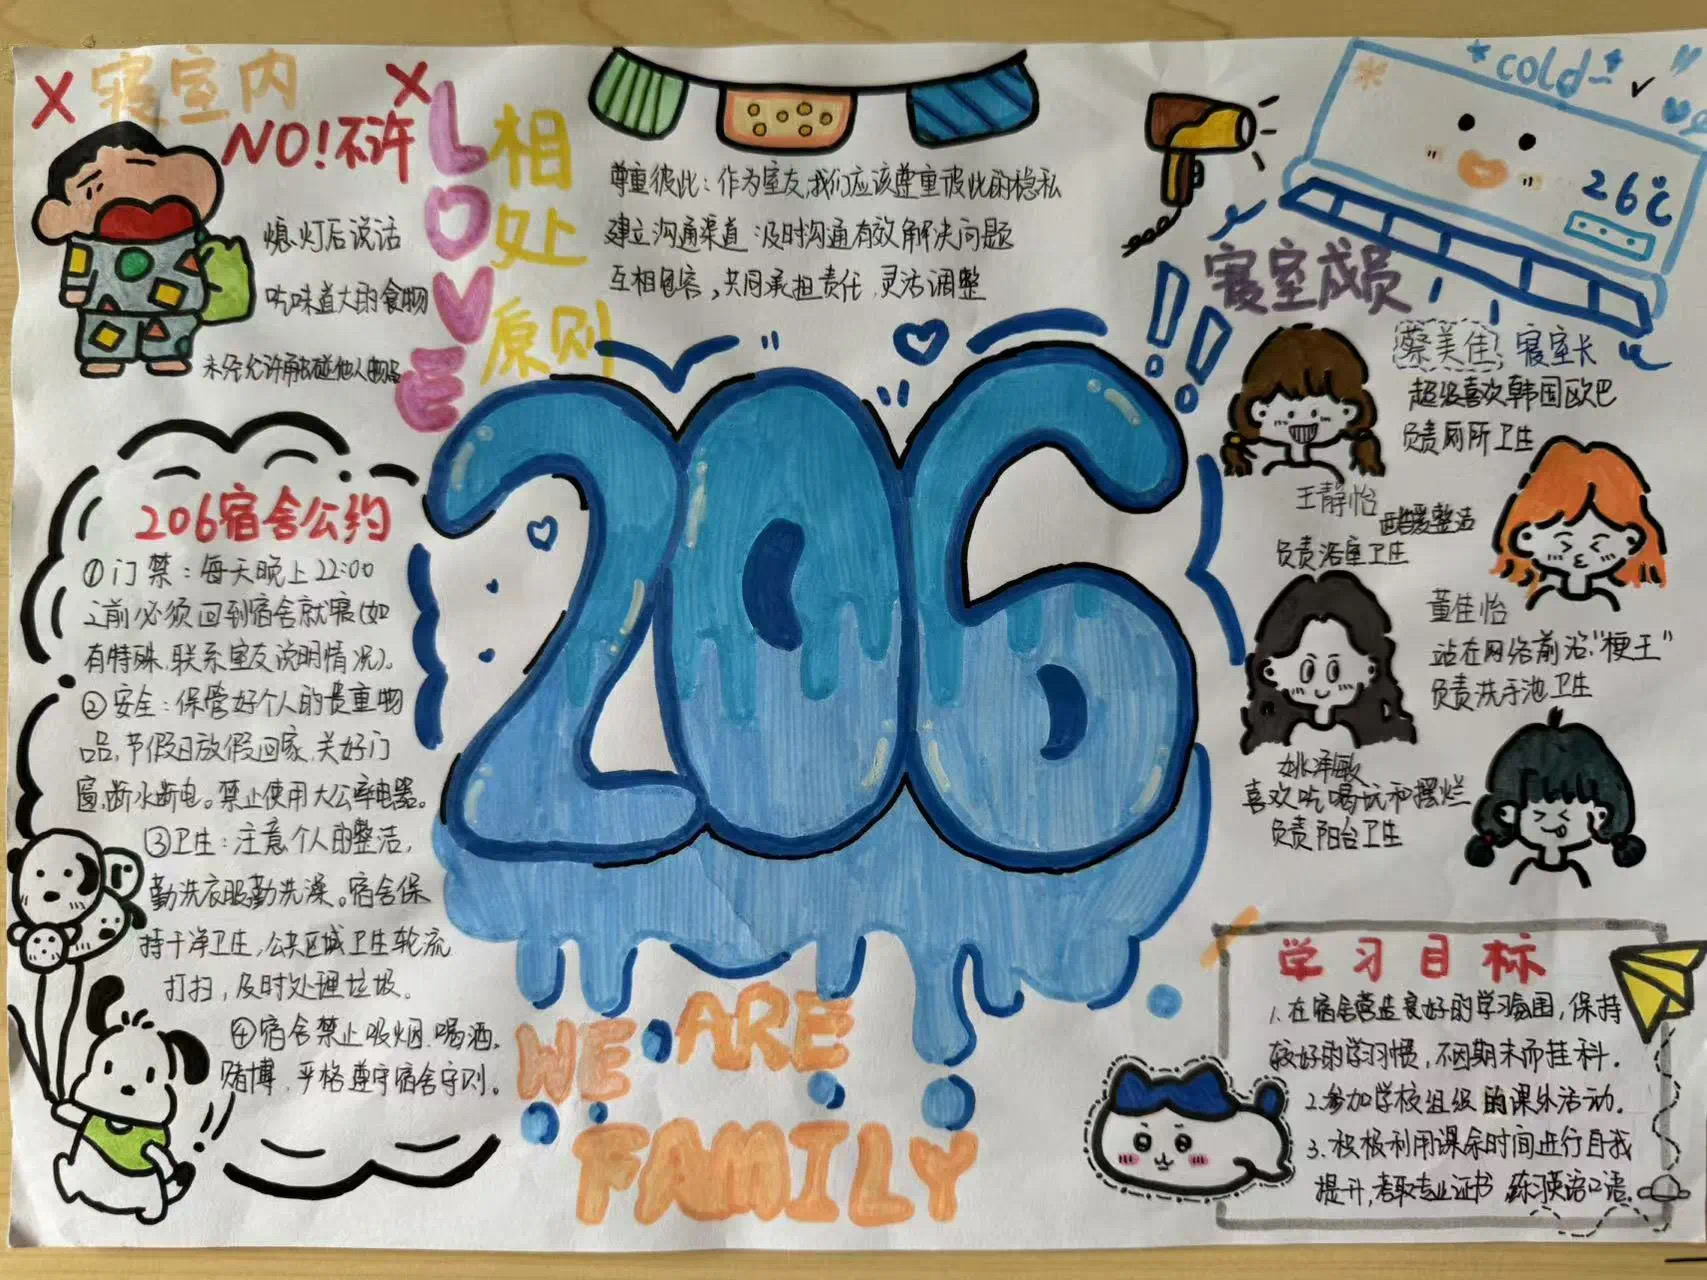 寝室内
NO!不许
熄灯后说话
吃味道大的食物
未经允许触碰他人物品
LOVE
相处
原则
尊重彼此：作为室友,我们应该尊重彼此的稳私
建立沟通渠道:及时沟通有效解决问题
互相包容,共同承担责任,灵活调整
cold~
26℃
寝室成员
蔡美佳 寝室长
超级喜欢韩国欧巴
负责厕所卫生
王静怡
整洁
负责浴室卫生
董佳怡
站在网络前沿"梗王"
负责洗手池卫生
敏
喜欢吃喝玩和摆烂
负责阳台卫生
206宿舍公约
①门禁：每天晚上22:00
之前必须回到宿舍就寝(如
有特殊,联系室友说明情况).
②安全:保管好个人的贵重物
品,节假日放假回家,关好门
窗,断水断电。禁止使用大公率电器。
③卫生：注意个人的整洁,
勤洗衣服勤洗澡。宿舍保
持干净卫生,公共区域卫生轮流
打扫,及时处理垃圾。
④宿舍禁止吸烟.喝酒.
赌博,严格遵守宿舍守则。
206
WE ARE
FAMILY
学习目标
1.在宿舍营造良好的学习氛围,保持
较好的学习习惯,不因期末而挂科.
2.参加学校组织的课外活动.
3.积极利用课余时间进行自我
提升,考取专业证书 练习英语口语.